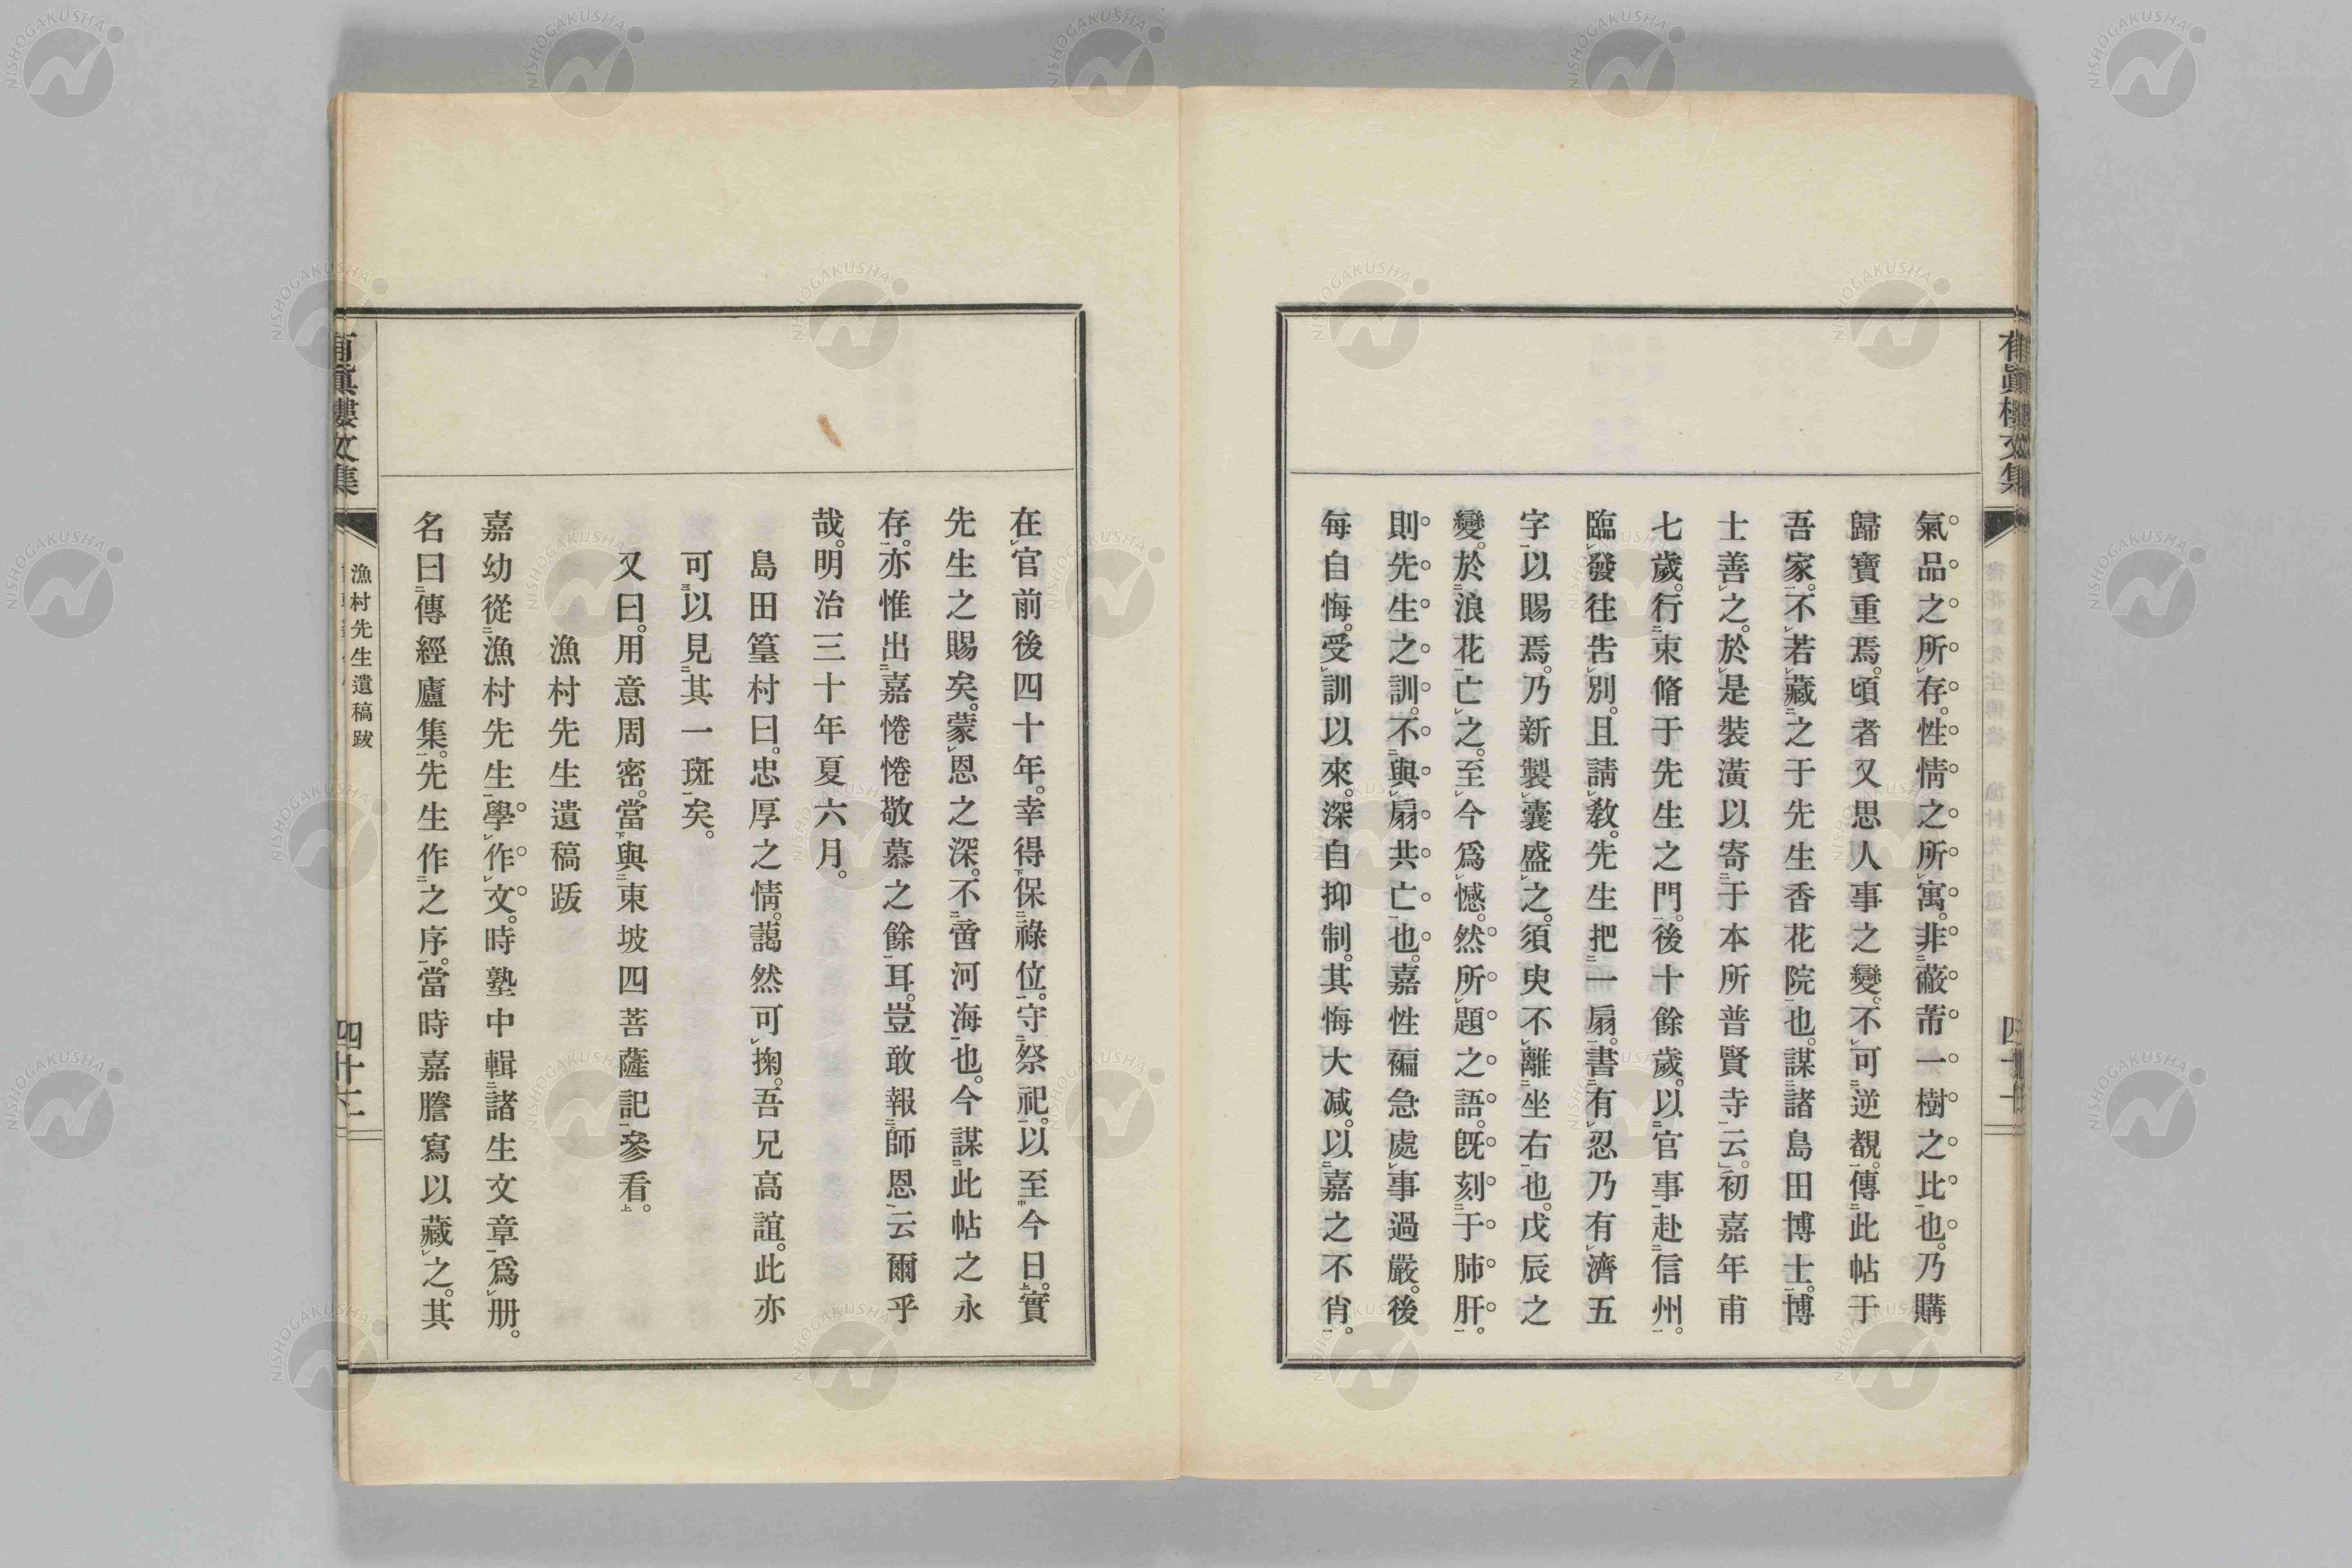 有眞樓文集
氣品之所存。性情之所寓。非蔽芾一樹之比也。乃購
歸寶重焉。頃者又思人事之變。不可逆覩。傳此帖于
吾家。不若藏之于先生香花院也。謀諸島田博士。博
士善之。於是裝潢以寄于本所普賢寺云。初嘉年甫
七歲。行束脩于先生之門。後十餘歲。以官事赴信州。
臨發往吿別。且請敎。先生把一扇。書有忍乃有濟五
字以賜焉。乃新製囊盛之。須臾不離坐右也。戊辰之
變。於浪花亡之。至今爲憾。然所題之語。旣刻于肺肝。
則先生之訓。不與扇共亡也。嘉性褊急。處事過嚴。後
每自悔。受訓以來。深自抑制。其悔大減。以嘉之不肖。
在官前後四十年。幸得保祿位。守祭祀。以至今日。實
先生之賜矣。蒙恩之深。不啻河海也。今謀此帖之永
存。亦惟出嘉惓惓敬慕之餘耳。豈敢報師恩云爾乎
哉。明治三十年夏六月。
島田篁村曰。忠厚之情。藹然可掬。吾兄高誼。此亦
可以見其一斑矣。
又曰。用意周密。當與東坡四菩薩記參看。
漁村先生遺稿跋
嘉幼從漁村先生學作文。時塾中輯諸生文章爲册。
名曰傳經廬集。先生作之序。當時嘉謄寫以藏之。其
有眞樓文集
漁村先生遺稿跋
四十二